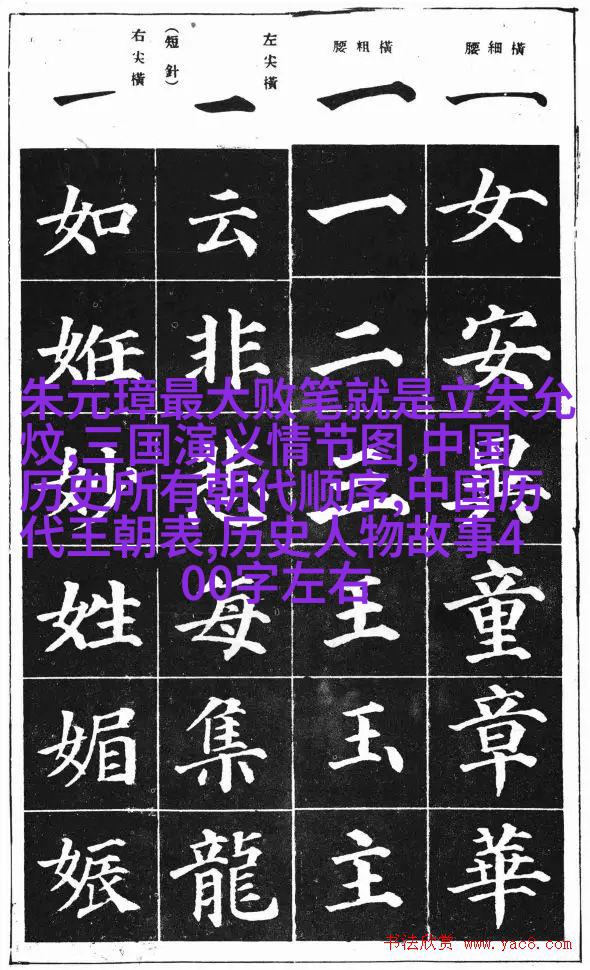 橫細腰
一
女
安
童
章
華
橫粗腰
一
一
二
三
王
玉
主
左尖橫
(短針)
一
云
非
悲
每
集
龍
右尖橫
一
如
姙
妙
姓
媚
娠
朱元璋最大败笔就是立朱允
炆,三国演义情节图,中国
历史所有朝代顺序,中国历
代王朝表,历史人物故事4
00字左右
书法欣赏 www.yac8.com